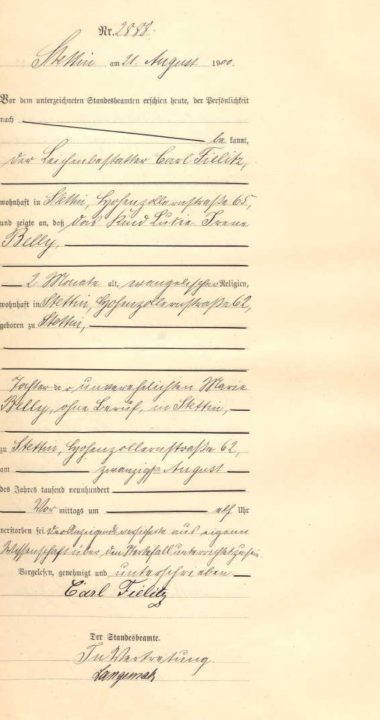 Nr. 2888.
Stettin am 21. August 1900.
Vor dem unterzeichneten Standesbeamten erschien heute, der Persönlichkeit
nach
be kannt,
der Leichenbestatter Carl Fielitz,
wohnhaft in Stettin, Hohenzollernstraße 65,
und zeigte an, daß das Kind Lucie Irene
Belly,
2 Monate alt, evangelischer Religion,
wohnhaft in Stettin, Hohenzollernstraße 62,
geboren zu Stettin,
Tochter der unverehelichten Marie
Belly, ohne Beruf, in Stettin,
zu Stettin, Hohenzollernstraße 62,
am zwanzigsten August
des Jahres tausend neunhundert
Vor mittags um elf Uhr
verstorben sei. Der Anzeigende versicherte aus eigener
Wissenschaft über den Sterbefall unterrichtet zu sein.
Vorgelesen, genehmigt und unterschrieben
Carl Fielitz
Der Standesbeamte.
In Vertretung.